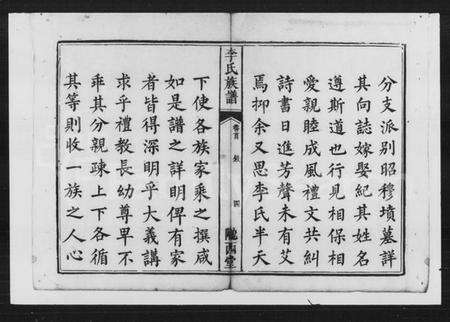 分支派別昭穆墳墓詳
其向誌嫁娶紀其姓名
遵斯道也行見相保相
愛親睦成風禮文共糾
詩書日進芳聲未有艾
焉抑余又思李氏半天
李氏族譜
卷首
四
隴西堂
下使各族家乘之撰咸
如是譜之詳明俾有家
者皆得深明乎大義講
求乎禮教長幼尊卑不
乖其分親疎上下各循
其等則收一族之人心